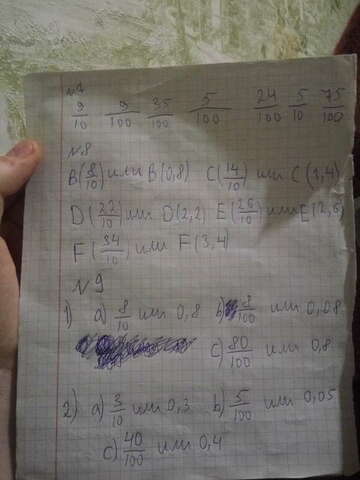 №7
9/10 9/100 35/100 5/100 24/100 5/10 75/100
№8
B(8/10) или B(0,8) C(14/10) или C(1,4)
D(22/10) или D(2,2) E(26/10) или E(2,6)
F(34/10) или F(3,4)
№9
1) a) 8/10 или 0,8 b) 8/100 или 0,08
c) 80/100 или 0,8
2) a) 3/10 или 0,3 b) 5/100 или 0,05
c) 40/100 или 0,4